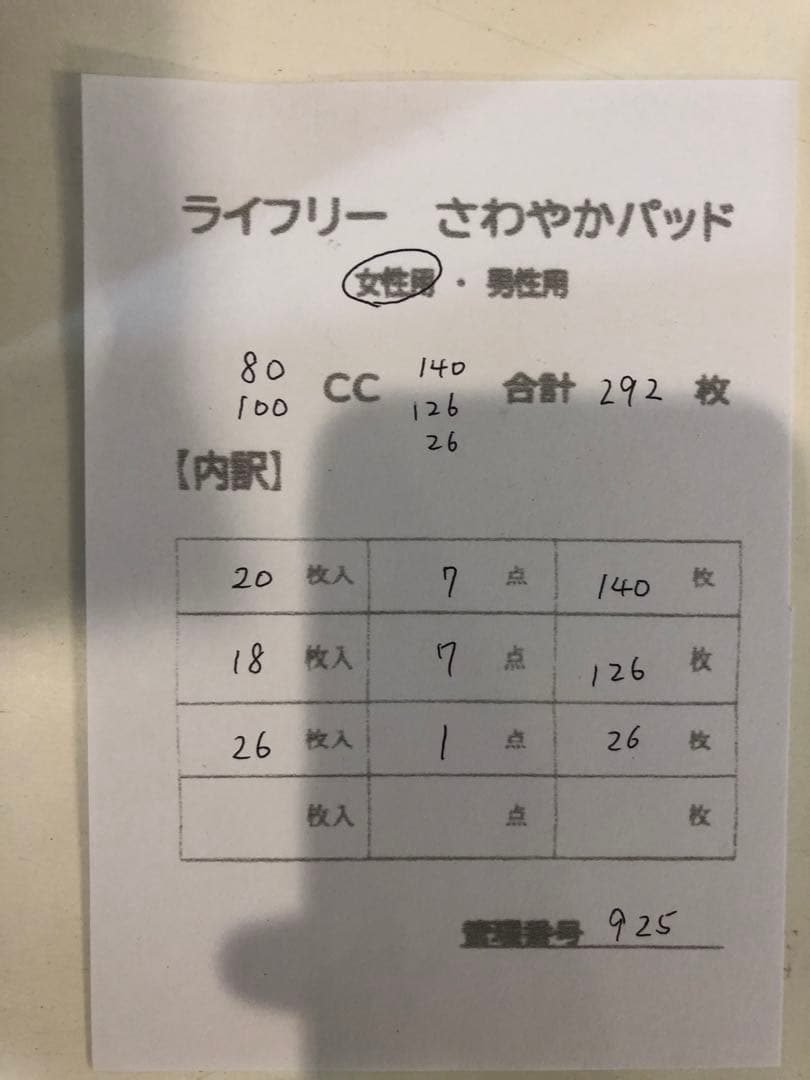 ライフリー さわやかパッド
女性用・男性用
80 100 CC 140 126 26 合計 292 枚
【内訳】
20 枚入 7 点 140 枚
18 枚入 7 点 126 枚
26 枚入 1 点 26 枚
枚入 点 枚
管理番号 925